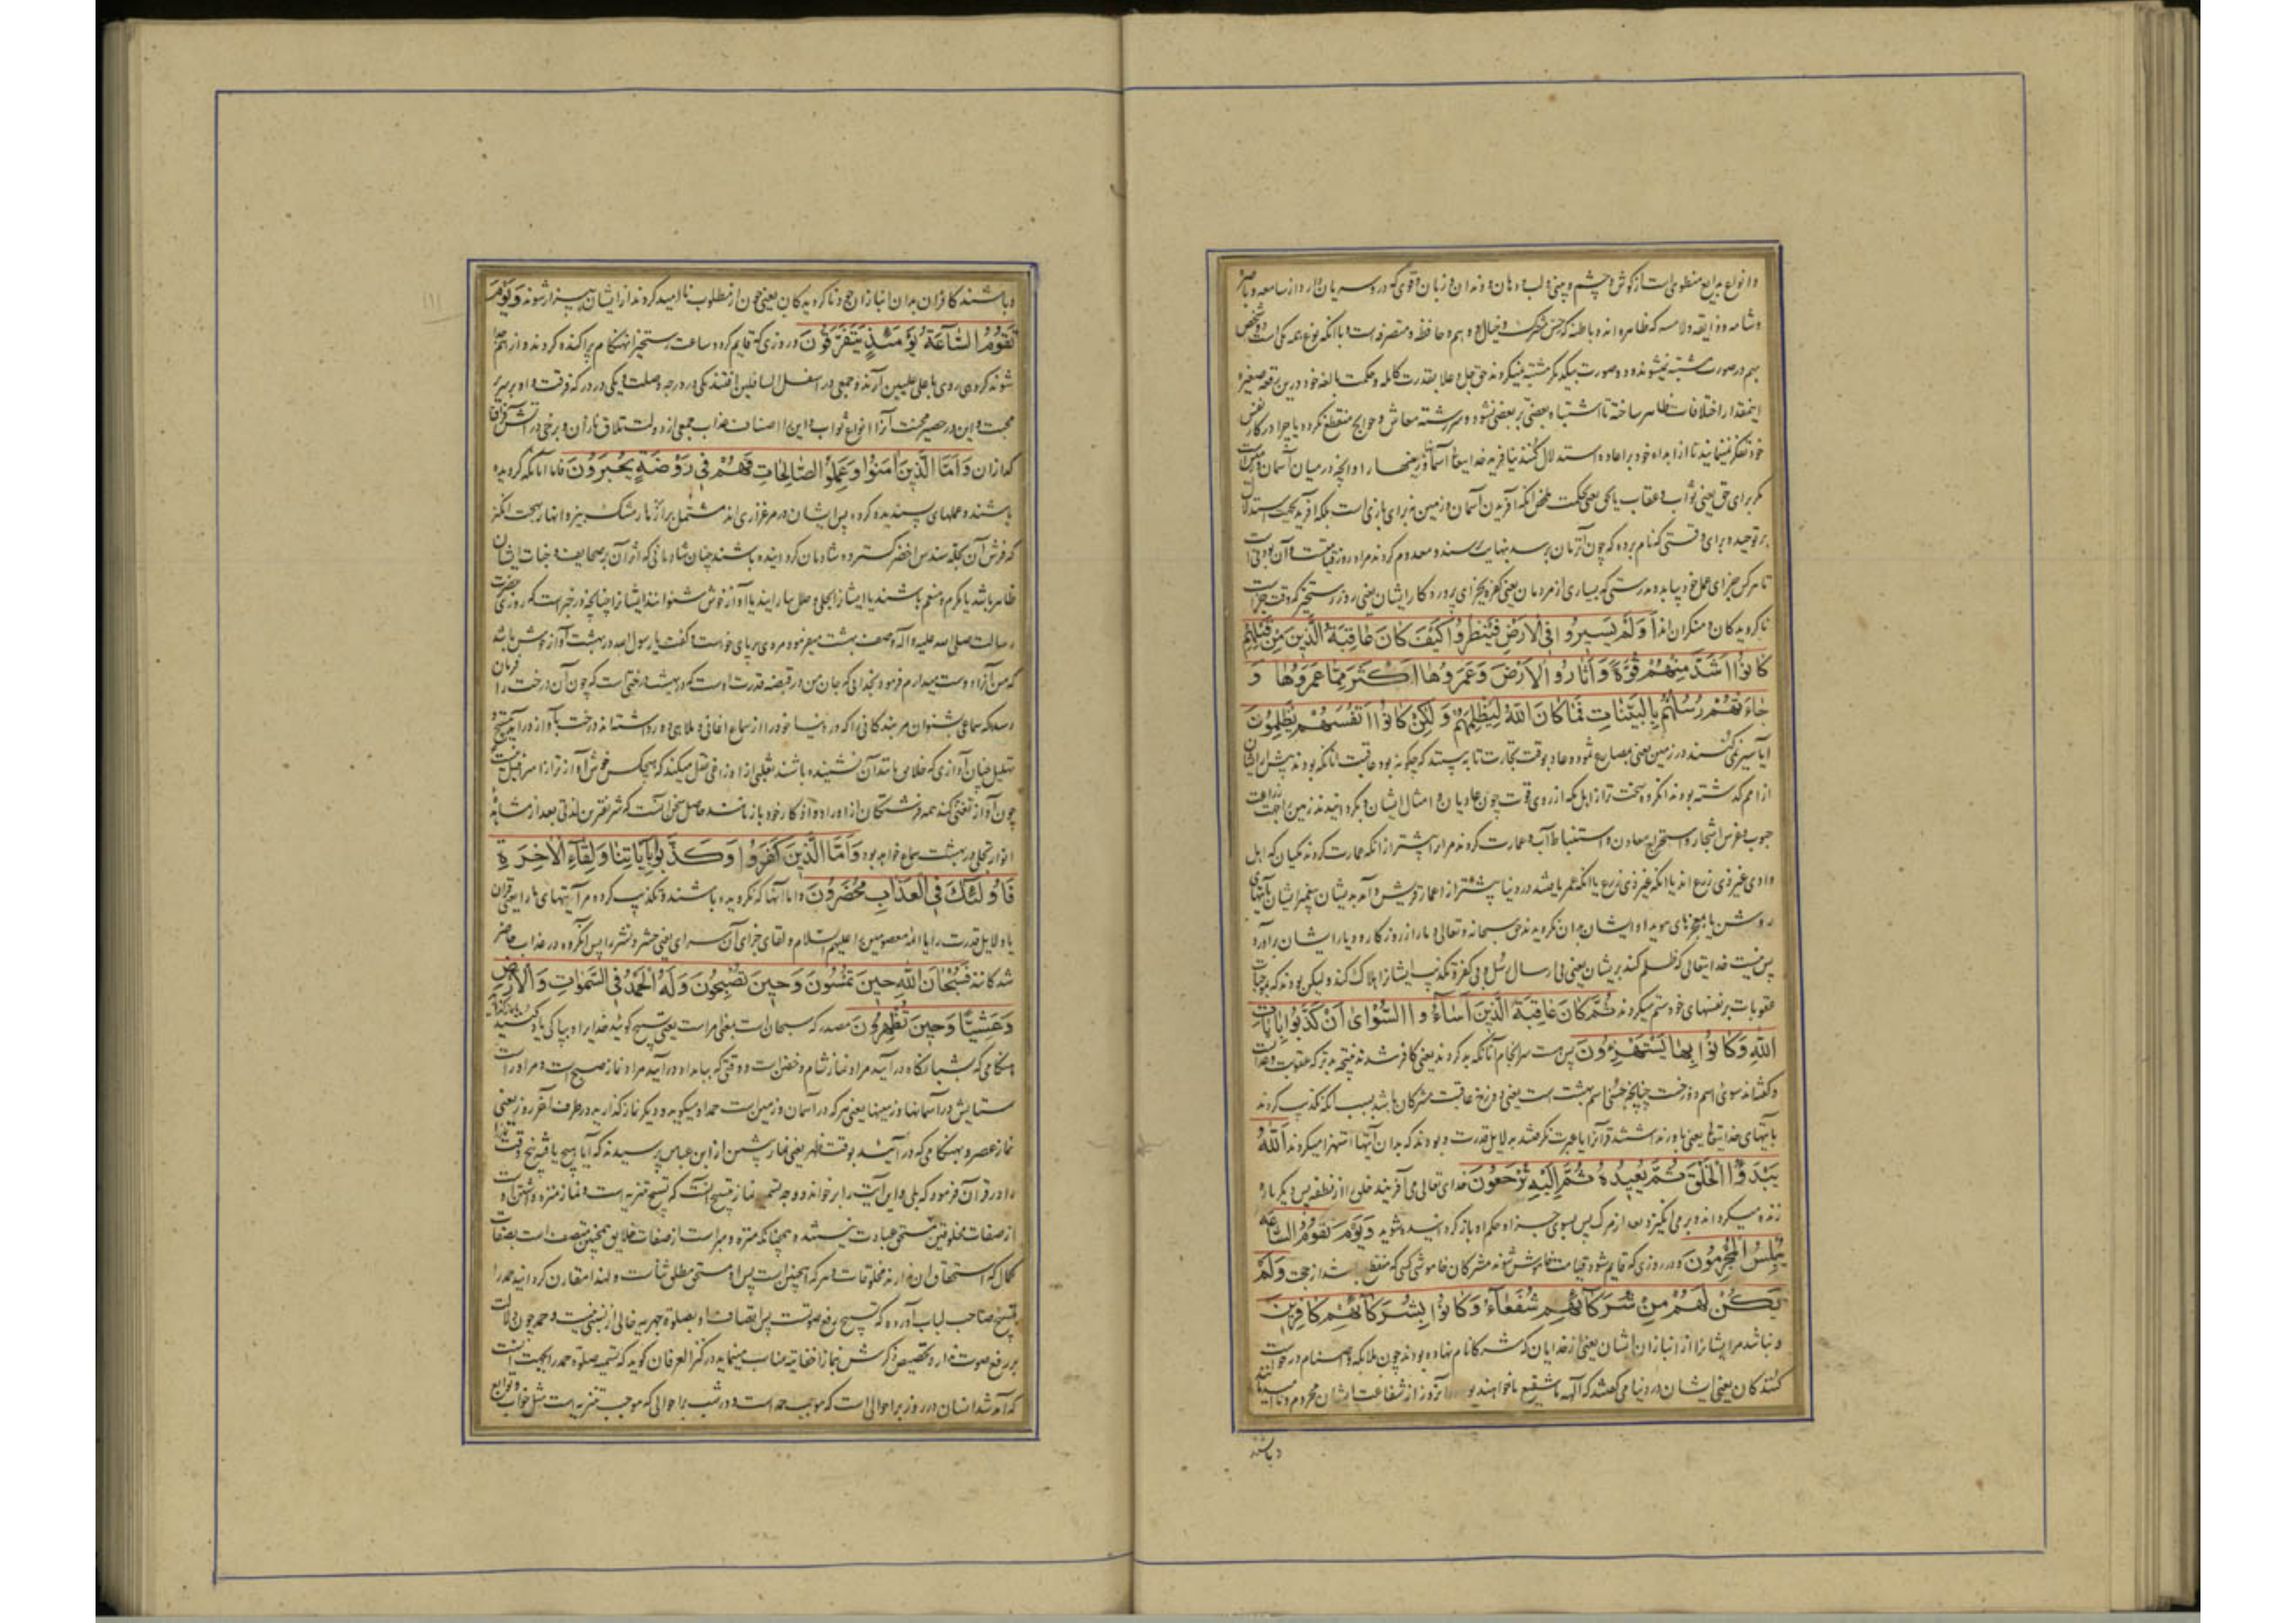 و انواع بدایع منطوی است از گوش و چشم و بینی و لب و دهان و دندان و زبان و قوی که در وساریان دارد از سامعه و باصره
و شامه و ذایقه و لامسه که ظاهره اند و باطنه که حس مشترک و خیال و وهم و حافظه و متصرفه است با آنکه نوع همه یکی است
بهم در صورت مشتبه نمیشوند و دو صورت بیکدیگر مشتبه نمیگردند حق جل و علا بقدرت کامله و حکمت بالغه خود درین رقعه صغیره
اینمقدار اختلافات ظاهر ساخته تا اشتباه بعضی بر بعضی نشود و سررشته معاش و حوایج منقطع نگردد یا چرا در کار نفس
خود تفکر نمینمایند تا از ابداء خود بر اعاده استدلال کنند نیافریده خدایتعالی آسمانها و زمینها را و آنچه در میان آسمان و زمین است
مگر برای حق یعنی ثواب و عقاب یا بحق یعنی بحکمت محض آنکه آفریدن آسمان و زمین نه برای بازی است بلکه آفریده بجهت استدلال
بر توحید و برای وقتی که نام برده که چون آن زمان برسد بنهایت رسند و معدوم گردند مراد روز قیامت
تا هر کس جزای عمل خود بیابد و بدرستی که بسیاری از مردمان یعنی کفره بجزای پروردگار ایشان یعنی روز رستخیز که وقت جزا است
ناگرویدگان و منکران اند اَوَلَمْ يَسِيرُوا فِي الْاَرْضِ فَيَنْظُرُوا كَيْفَ كَانَ عَاقِبَةُ الَّذِينَ مِنْ قَبْلِهِمْ
كَانُوا اَشَدَّ مِنْهُمْ قُوَّةً وَاَثَارُوا الْاَرْضَ وَعَمَرُوهَا اَكْثَرَ مِمَّا عَمَرُوهَا وَ
جَاءَتْهُمْ رُسُلُهُمْ بِالْبَيِّنَاتِ فَمَا كَانَ اللّٰهُ لِيَظْلِمَهُمْ وَلٰكِنْ كَانُوا اَنْفُسَهُمْ يَظْلِمُونَ
آیا سیر نمی کنند در زمین یعنی بمصارع ثمود و عاد بوقت تجارت تا ببینند که چگونه بود عاقبت آنانکه بودند پیش از ایشان
از امم گذشته بودند آنگروه سخت تر از اهل مکه از روی قوت چون عادیان و امثال ایشان و بگردانیدند زمین را بجهت زراعت
حبوب و غرس اشجار و استخراج معادن و استنباط آب و عمارت کردند مر آنرا بیشتر از آنکه عمارت کردند مکیان که اهل
وادی غیر ذی زرع اند یا آنکه عمر یافتند در دنیا بیشتر از اعمار قریش و آمد بدیشان پیغمبر ایشان بآیتهای
روشن یا بمعجزهای هویدا و ایشان بدان نگرویدند حق سبحانه و تعالی دمار از روزگار و دیار ایشان برآورد
پس نیست خدایتعالی که ظلم کند بر ایشان یعنی بی ارسال رسل و بی کفر و تکذیب ایشان را هلاک کند ولیکن بودند که بموجبات
عقوبات بر نفسهای خود ستم میکردند ثُمَّ كَانَ عَاقِبَةَ الَّذِينَ اَسَاءُوا السُّوْاٰى اَنْ كَذَّبُوا بِاٰيَاتِ
اللّٰهِ وَكَانُوا بِهَا يَسْتَهْزِءُونَ پس هست سرانجام آنانکه بد کردند یعنی کافر شدند
و گفته اند سوی اسم دوزخ است چنانچه حسنی اسم بهشت است یعنی دوزخ عاقبت مشرکان باشد بسبب آنکه تکذیب کردند
بآیتهای خدایتعالی یعنی باور نداشتند قرآنرا یا عبرت نگرفتند بدلایل قدرت و بودند که بدان آیتها استهزا میکردند اَللّٰهُ
يَبْدَؤُا الْخَلْقَ ثُمَّ يُعِيدُهُ ثُمَّ اِلَيْهِ تُرْجَعُونَ خدای تعالی می آفریند خلق را از نطفه پس دیگر باره
زنده میگرداند و برمی انگیزد بعد از مرگ پس بسوی جزا و حکم او بازگردانیده شوید وَيَوْمَ تَقُومُ السَّاعَةُ
يُبْلِسُ الْمُجْرِمُونَ و در روزی که قایم شود قیامت خاموش شوند مشرکان خاموشی کسی که منقطع باشد از حجت وَلَمْ
يَكُنْ لَهُمْ مِنْ شُرَكَائِهِمْ شُفَعَاءُ وَكَانُوا بِشُرَكَائِهِمْ كَافِرِينَ
و نباشد مر ایشانرا از انبازان ایشان یعنی از خدایان که شرکا نام نهاده بودند چون ملائکه و اصنام درخواست
کنندگان یعنی ایشان در دنیا می گفتند که آلهه ما شفیع ما خواهند بود آنروز از شفاعت ایشان محروم و ناامید
و باشند
و باشند کافران بدان انبازان جحود ناگرویدگان یعنی چون از مطلوب ناامید گردند از ایشان بیزار شوند وَيَوْمَ
تَقُومُ السَّاعَةُ يَوْمَئِذٍ يَتَفَرَّقُونَ و روزی که قایم گردد ساعت رستخیز آنهنگام پراکنده گردند و از هم جدا
شوند گروهی روی باعلی علیین آرند و جمعی در اسفل السافلین افتند یکی در درجه وصلت و یکی در درکه فرقت و او بر سریر
محبت و این در حصیر محنت آنرا انواع ثواب و این را اصناف عذاب جمعی از دولت تلاق نازان و برخی در آتش فراق
گدازان وَاَمَّا الَّذِينَ اٰمَنُوا وَعَمِلُوا الصَّالِحَاتِ فَهُمْ فِي رَوْضَةٍ يُحْبَرُونَ فاما آنانکه گرویده
باشند و عملهای پسندیده کرده پس ایشان در مرغزاری اند مشتمل بر ازهار مشک بیز و انهار بهجت انگیز
که فرش آن بحله سندس اخضر گسترده شادمان گردانیده باشند چنان شادمانی که اثر آن بر صحایف وجنات ایشان
ظاهر باشد یا مکرم و منعم باشند یا ایشانرا بحلی و حلل بیارایند یا آواز خوش شنوانند ایشانرا چنانچه در خبر است که روزی حضرت
رسالت صلی الله علیه و آله وصف بهشت میفرمود مردی برپای خواست و گفت یا رسول الله در بهشت آواز خوش باشد
که من آنرا دوست میدارم فرمود بخدایی که جان من در قبضه قدرت اوست که در بهشت درختی است که چون آن درخت را فرمان
رسد که سماعی بشنوان مر بندگانی را که در دنیا خود را از سماع اغانی و ملاهی دور داشتند درخت بآواز درآید بتسبیح و
تهلیل چنان آوازی که خلایق مانند آن نشنیده باشند ثعلبی از اوزاعی نقل میکند که هیچکس خوش آوازتر از اسرافیل نیست
چون آواز تغنی کند همه فرشتگان از اوراد و اذکار خود باز مانند حاصل سخن آنست که شریفترین لذتی بعد از مشاهده
انوار تجلی در بهشت سماع خواهد بود وَاَمَّا الَّذِينَ كَفَرُوا وَكَذَّبُوا بِاٰيَاتِنَا وَلِقَاءِ الْاٰخِرَةِ
فَاُولٰئِكَ فِي الْعَذَابِ مُحْضَرُونَ و اما آنها که نگرویده باشند و تکذیب کرده مر آیتهای ما را یعنی قرآن
یا دلایل قدرت را یا ائمه معصومین را علیهم السلام و لقای جزای آن سرای یعنی حشر و نشر را پس آنگروه در عذاب حاضر
شدگانند فَسُبْحَانَ اللّٰهِ حِينَ تُمْسُونَ وَحِينَ تُصْبِحُونَ وَلَهُ الْحَمْدُ فِي السَّمٰوَاتِ وَالْاَرْضِ
وَعَشِيًّا وَحِينَ تُظْهِرُونَ مصدر که سبحان است بمعنی امر است یعنی تسبیح گوئید خدایرا و بپاکی یاد کنید
هنگامی که شبانگاه درآئید مراد نماز شام و خفتن است و وقتی که ببامداد درآئید مراد نماز صبح است و مر او راست
ستایش در آسمانها و زمینها یعنی هر که در آسمان و زمین است حمد او میگوید و دیگر نماز گذارید در طرف آخر روز یعنی
نماز عصر و بهنگامی که درآئید بوقت ظهر یعنی نماز پیشین از ابن عباس پرسیدند که آیا هیچ یافتی پنج وقت نماز
را در قرآن فرمود که بلی و این آیت را برخواند و وجه تسمیه نماز بتسبیح آنست که تسبیح تنزیه است و نماز
از صفات مخلوقین مستحق عبادت نیستند و همچنانکه منزه و مبراست از صفات خلایق همچنین متصف است بصفات
کمال که استحقاق آن ندارند مخلوقات و هر که اینچنین است پس او مستحق مطلق ثنا است و لهذا مقارن گردانید حمد را
بتسبیح صاحب لباب آورده که تسبیح رفع صوتست پس اتصاف او بصلوة جهریه خالی از نسبتی نیست و حمد چون دلالت
بر رفع صوت ندارد تخصیص ذکرش بنماز اخفاتیه مناسب مینماید در کنز العرفان گوید که تسمیه صلوة بحمد بجهت آنست
که آمد شد انسان در روز بر احوالی است که موجب حمد است و در شب بر احوالی که موجب تنزیه است مثل خواب و توابع